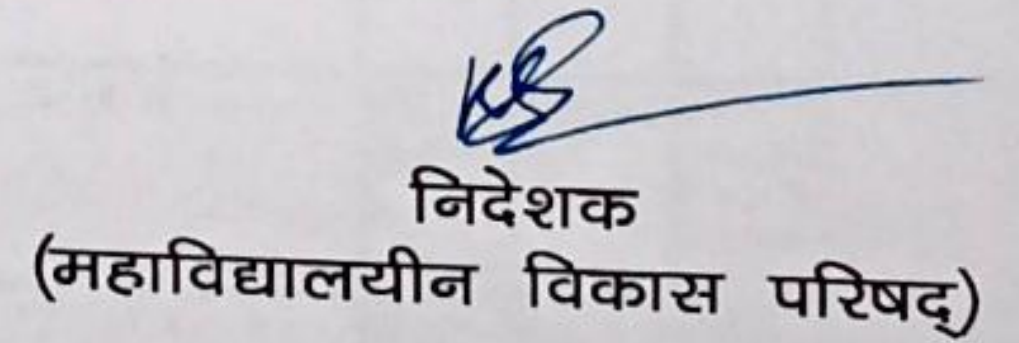 निदेशक
(महाविद्यालयीन विकास परिषद्)